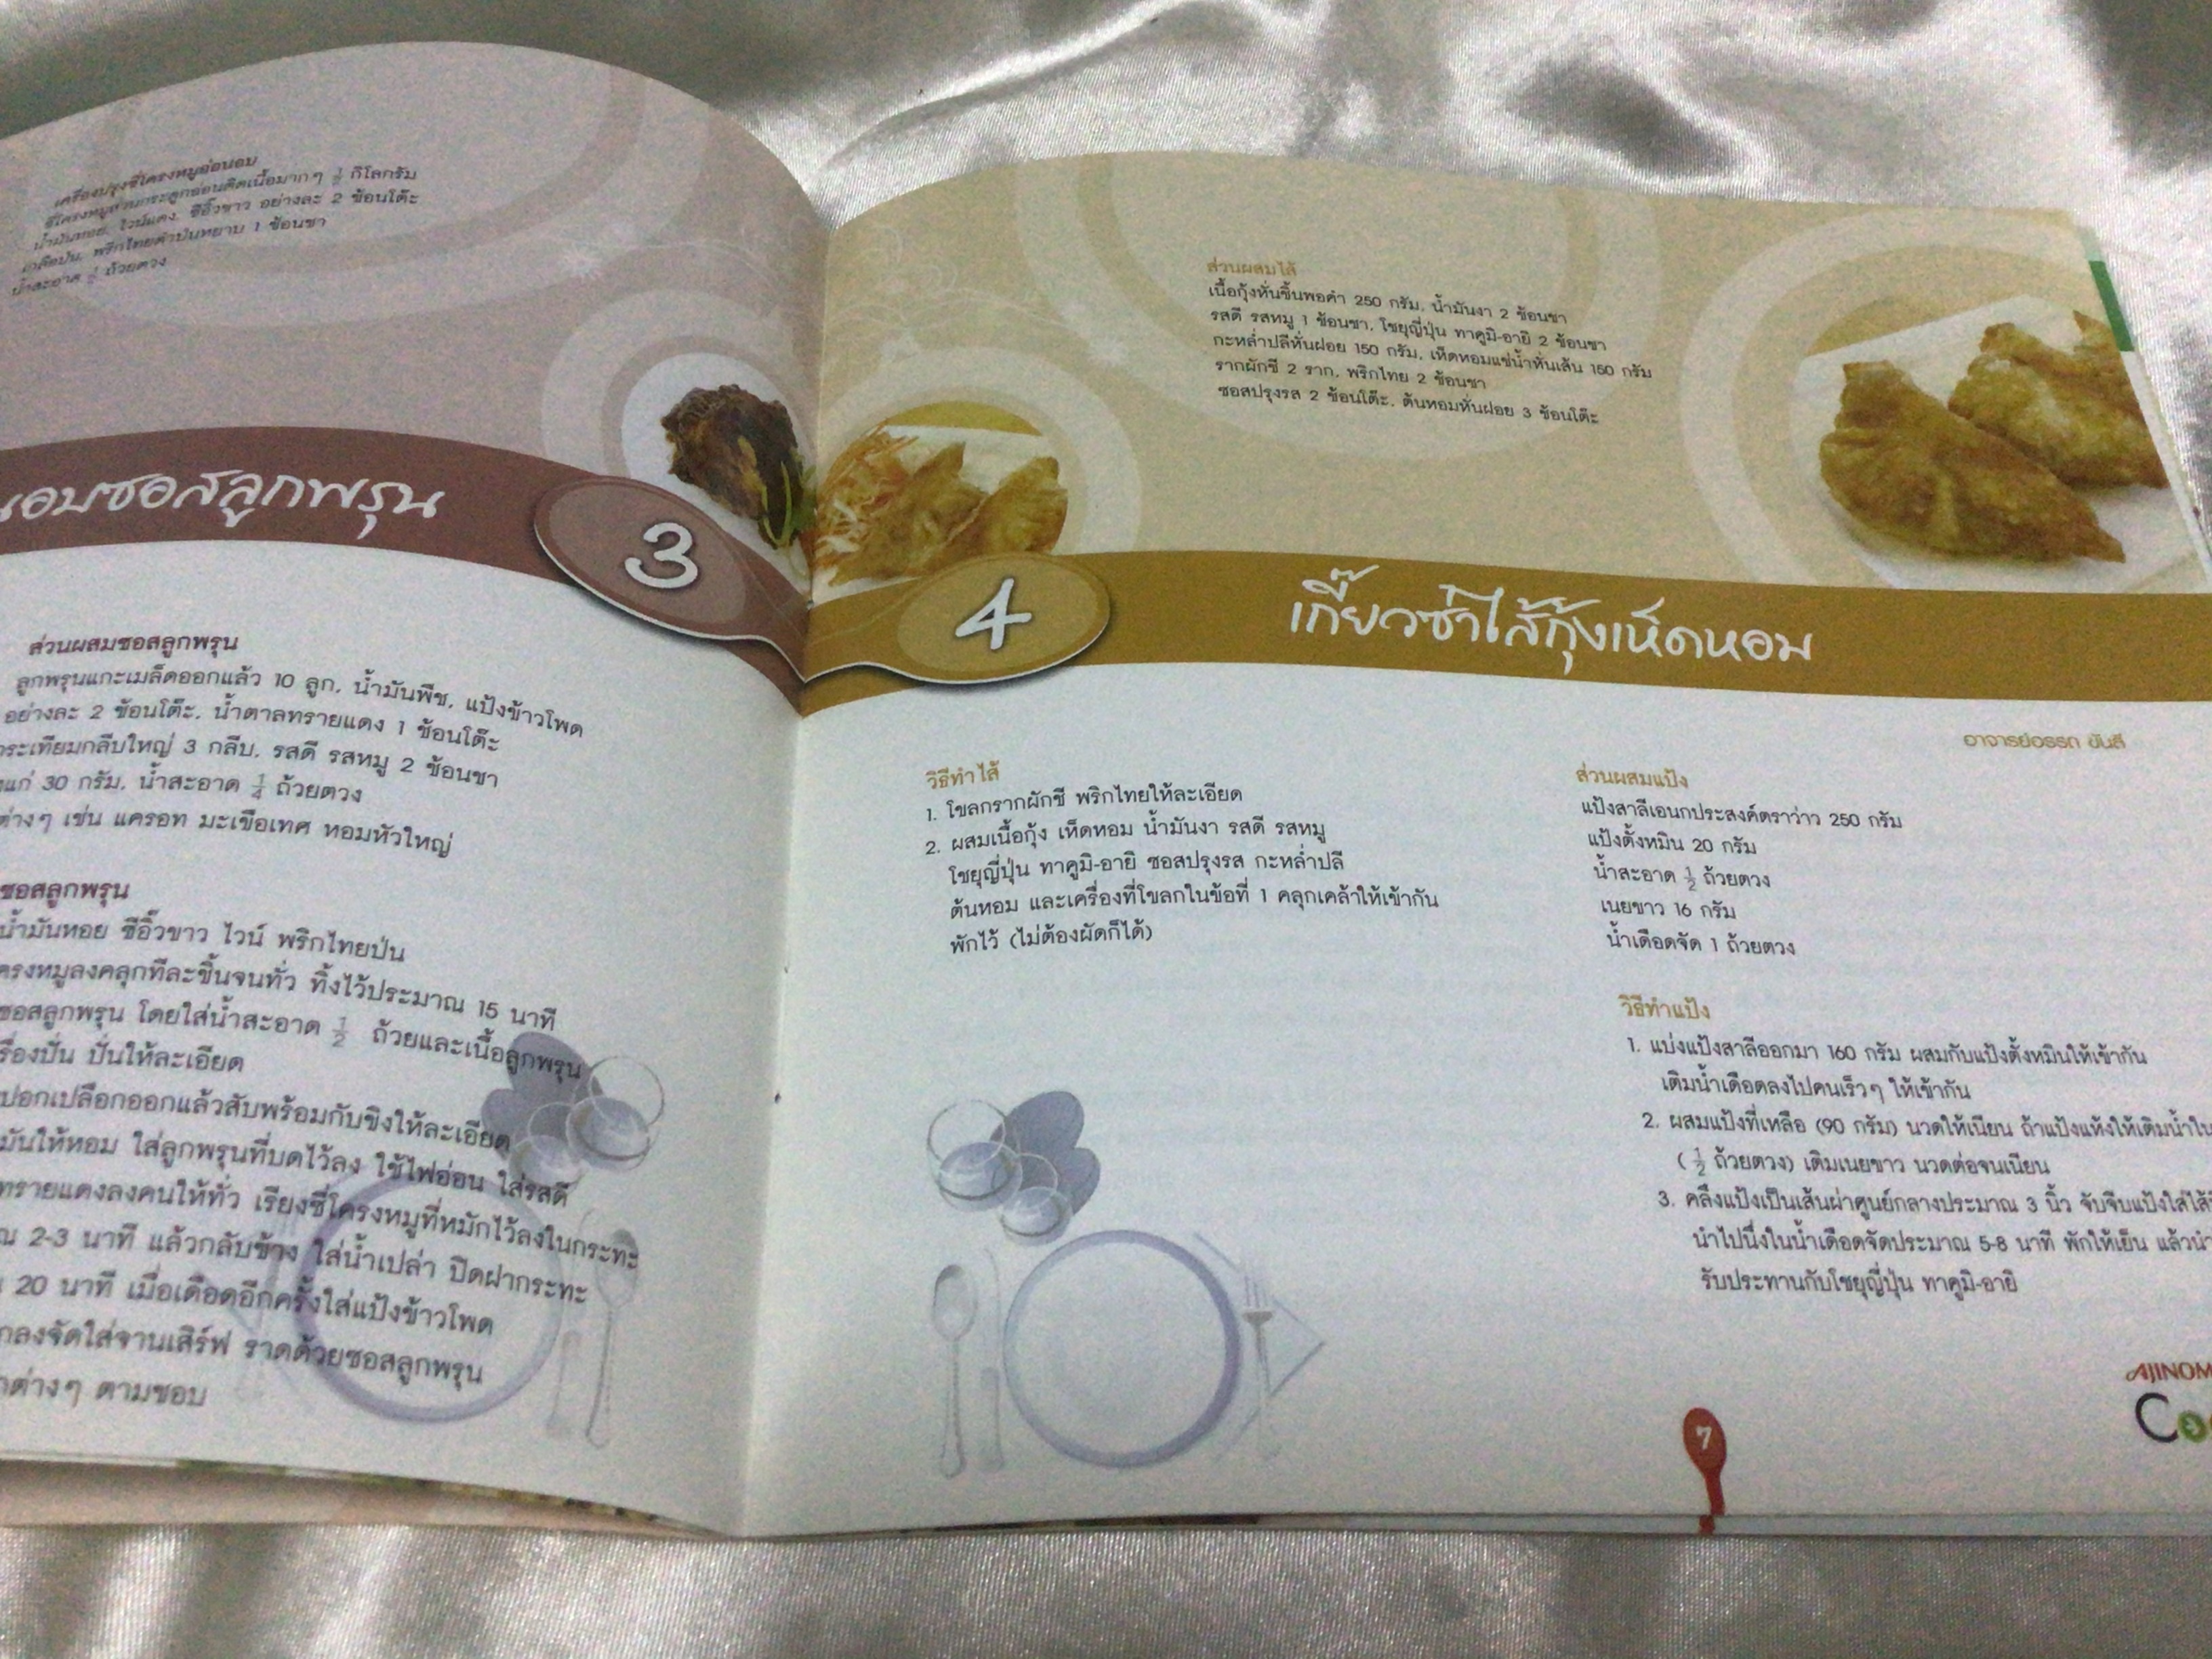 เครื่องปรุงซี่โครงหมูอ่อนอบ
ซี่โครงหมูส่วนกระดูกอ่อนติดเนื้อมากๆ ½ กิโลกรัม
น้ำมันหอย, ไวน์แดง, ซีอิ๊วขาว อย่างละ 2 ช้อนโต๊ะ
เกลือป่น, พริกไทยดำป่นหยาบ 1 ช้อนชา
น้ำสะอาด ถ้วยตวง
นอบซอสลูกพรุน
3
ส่วนผสมซอสลูกพรุน
ลูกพรุนแกะเมล็ดออกแล้ว 10 ลูก, น้ำมันพืช, แป้งข้าวโพด
อย่างละ 2 ช้อนโต๊ะ, น้ำตาลทรายแดง 1 ช้อนโต๊ะ
กระเทียมกลีบใหญ่ 3 กลีบ, รสดี รสหมู 2 ช้อนชา
แก่ 30 กรัม, น้ำสะอาด ¼ ถ้วยตวง
ต่างๆ เช่น แครอท มะเขือเทศ หอมหัวใหญ่
ซอสลูกพรุน
น้ำมันหอย ซีอิ๊วขาว ไวน์ พริกไทยป่น
ครงหมูลงคลุกทีละชิ้นจนทั่ว ทิ้งไว้ประมาณ 15 นาที
ซอสลูกพรุน โดยใส่น้ำสะอาด ½ ถ้วยและเนื้อลูกพรุน
รื่องปั่น ปั่นให้ละเอียด
ปอกเปลือกออกแล้วสับพร้อมกับขิงให้ละเอียด
มันให้หอม ใส่ลูกพรุนที่บดไว้ลง ใช้ไฟอ่อน ใส่รสดี
ทรายแดงลงคนให้ทั่ว เรียงซี่โครงหมูที่หมักไว้ลงในกระทะ
ณ 2-3 นาที แล้วกลับข้าง ใส่น้ำเปล่า ปิดฝากระทะ
20 นาที เมื่อเดือดอีกครั้งใส่แป้งข้าวโพด
กลงจัดใส่จานเสิร์ฟ ราดด้วยซอสลูกพรุน
กต่างๆ ตามชอบ
ส่วนผสมไส้
เนื้อกุ้งหั่นชิ้นพอคำ 250 กรัม, น้ำมันงา 2 ช้อนชา
รสดี รสหมู 1 ช้อนชา, โชยุญี่ปุ่น ทาคูมิ-อายิ 2 ช้อนชา
กะหล่ำปลีหั่นฝอย 150 กรัม, เห็ดหอมแช่น้ำหั่นเส้น 150 กรัม
รากผักชี 2 ราก, พริกไทย 2 ช้อนชา
ซอสปรุงรส 2 ช้อนโต๊ะ, ต้นหอมหั่นฝอย 3 ช้อนโต๊ะ
4
เกี๊ยวซ่าไส้กุ้งเห็ดหอม
อาจารย์อรรถ ขันสี
วิธีทำไส้
1. โขลกรากผักชี พริกไทยให้ละเอียด
2. ผสมเนื้อกุ้ง เห็ดหอม น้ำมันงา รสดี รสหมู
โชยุญี่ปุ่น ทาคูมิ-อายิ ซอสปรุงรส กะหล่ำปลี
ต้นหอม และเครื่องที่โขลกในข้อที่ 1 คลุกเคล้าให้เข้ากัน
พักไว้ (ไม่ต้องผัดก็ได้)
ส่วนผสมแป้ง
แป้งสาลีเอนกประสงค์ตราว่าว 250 กรัม
แป้งตั้งหมิน 20 กรัม
น้ำสะอาด ½ ถ้วยตวง
เนยขาว 16 กรัม
น้ำเดือดจัด 1 ถ้วยตวง
วิธีทำแป้ง
1. แบ่งแป้งสาลีออกมา 160 กรัม ผสมกับแป้งตั้งหมินให้เข้ากัน
เติมน้ำเดือดลงไปคนเร็วๆ ให้เข้ากัน
2. ผสมแป้งที่เหลือ (90 กรัม) นวดให้เนียน ถ้าแป้งแห้งให้เติมน้ำใน
( ½ ถ้วยตวง) เติมเนยขาว นวดต่อจนเนียน
3. คลึงแป้งเป็นเส้นผ่าศูนย์กลางประมาณ 3 นิ้ว จับจีบแป้งใส่ไส้
นำไปนึ่งในน้ำเดือดจัดประมาณ 5-8 นาที พักให้เย็น แล้วนำ
รับประทานกับโชยุญี่ปุ่น ทาคูมิ-อายิ
AJINOM
Co
7